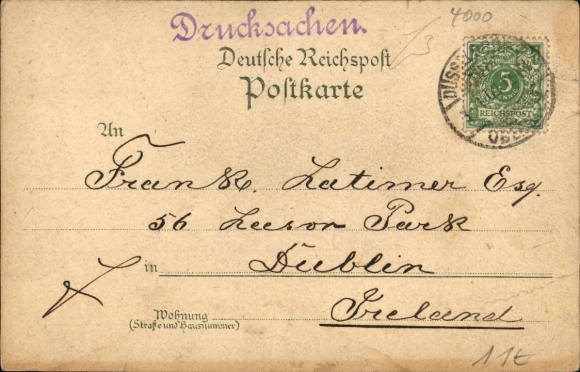 Drucksachen.
4000
Deutsche Reichspost
Postkarte
5
REICHSPOST
An
Frank. Latimer Esq.
56 Leeson Park
in Dublin
Ireland
Wohnung
(Straße und Hausnummer)
11€